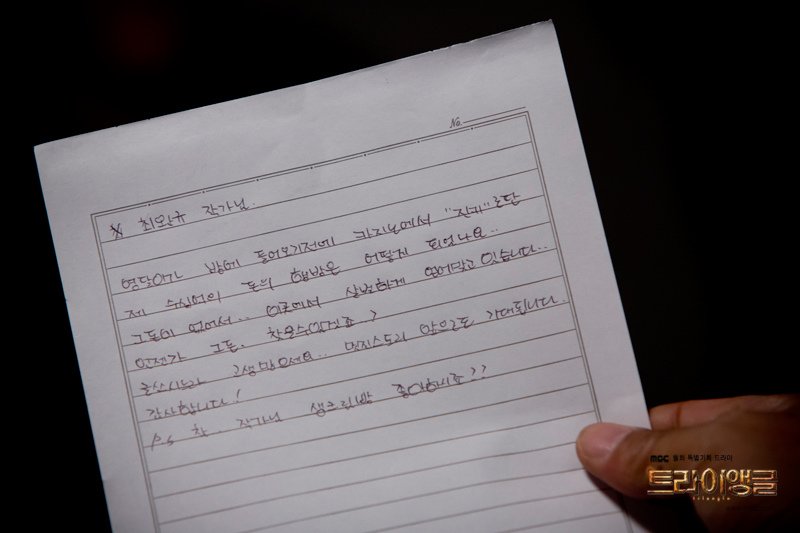 No.
※ 최완규 작가님.
영달이가 방에 들어오기전에 카지노에서 "진카"로 단
제 수십억의 돈의 행방은 어떻게 되었나요..
그돈이 없어서.. 이곳에서 살벌하게 얻어맞고 있습니다..
언젠가 그돈. 찾을수있겠죠?
글쓰시느라 고생많으세요.. 멋진스토리 앞으로도 기대됩니다..
감사합니다!
P.S 참 작가님 생크림빵 좋아하시죠??
MBC 월화 특별기획 드라마
트라이앵글
triangle